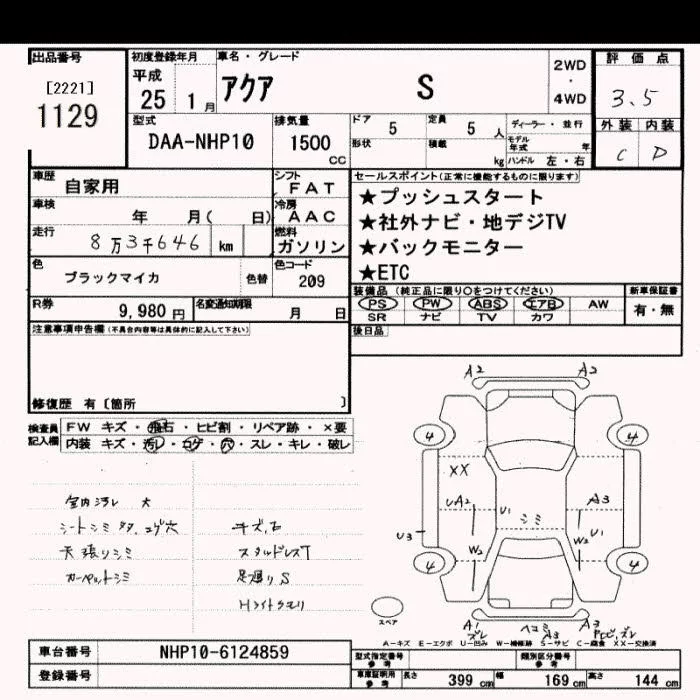 出品番号
[2221]
1129
初度登録年月
平成
25 1 月
車名・グレード
アクア S
2WD
・
4WD
評価点
3.5
外装 内装
C D
型式
DAA-NHP10
排気量
1500
CC
ドア 5
定員 5 人
形状
積載 kg
ディーラー・並行
モデル年式 年
ハンドル 左・右
車歴 自家用
シフト FAT
車検 年 月( 日)
冷房 AAC
走行 8万3千646 km
燃料 ガソリン
色 ブラックマイカ 色替
色コード 209
R券 9,980 円
名変通知期限 月 日
セールスポイント(正常に機能するものに限ります)
★プッシュスタート
★社外ナビ・地デジTV
★バックモニター
★ETC
装備品 (純正品に限り○をつけてください)
PS PW ABS エアB AW
SR ナビ TV カワ
新車保証書
有・無
後日品
注意事項申告欄(不具合内容等は具体的に記入して下さい)
修復歴 有〔箇所 〕
検査員記入欄
FW キズ・飛石・ヒビ割・リペア跡・×要
内装 キズ・汚レ・コゲ・穴・スレ・キレ・破レ
室内汚レ 大
シートシミ
天張りシミ
カーペットシミ
キズ、石
スタッドレスT
足廻りS
Hライトクモリ
A2 A2
4 4
XX
UA2 U1 A3
シミ
U3 W2 W2 U1
4 4
スペア
A1 ズレ
ヘコミ A3
A3
A-キズ E-エクボ U-凹み W-補修跡 S-サビ C-腐食 XX-交換済
車台番号 NHP10-6124859
登録番号
型式指定番号 参考
類別区分番号 参考
車庫証明用 参考
長さ 399 cm
幅 169 cm
高さ 144 cm